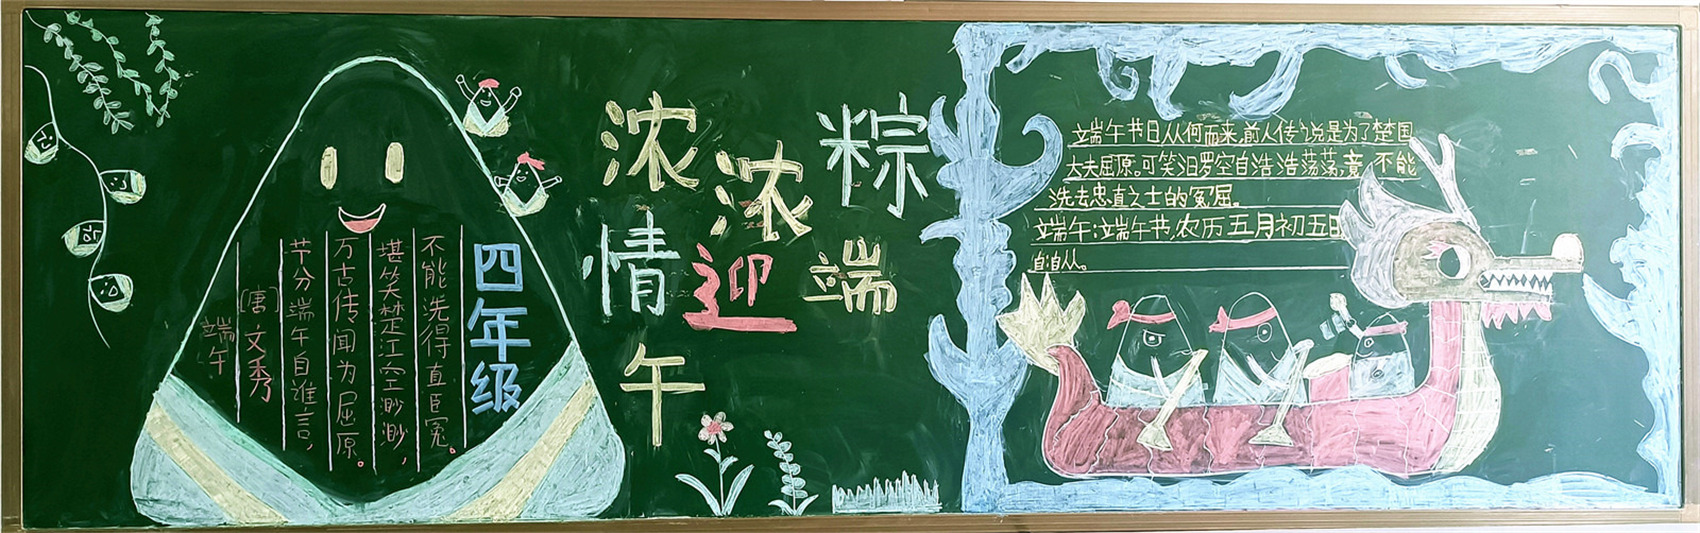 端午
[唐]文秀
节分端午自谁言,
万古传闻为屈原。
堪笑楚江空渺渺,
不能洗得直臣冤。
四年级
浓浓粽
情迎端
午
端午节日从何而来,前人传说是为了楚国
大夫屈原。可笑汨罗空自浩浩荡荡,竟不能
洗去忠直之士的冤屈。
端午:端午节,农历五月初五日
自:自从。